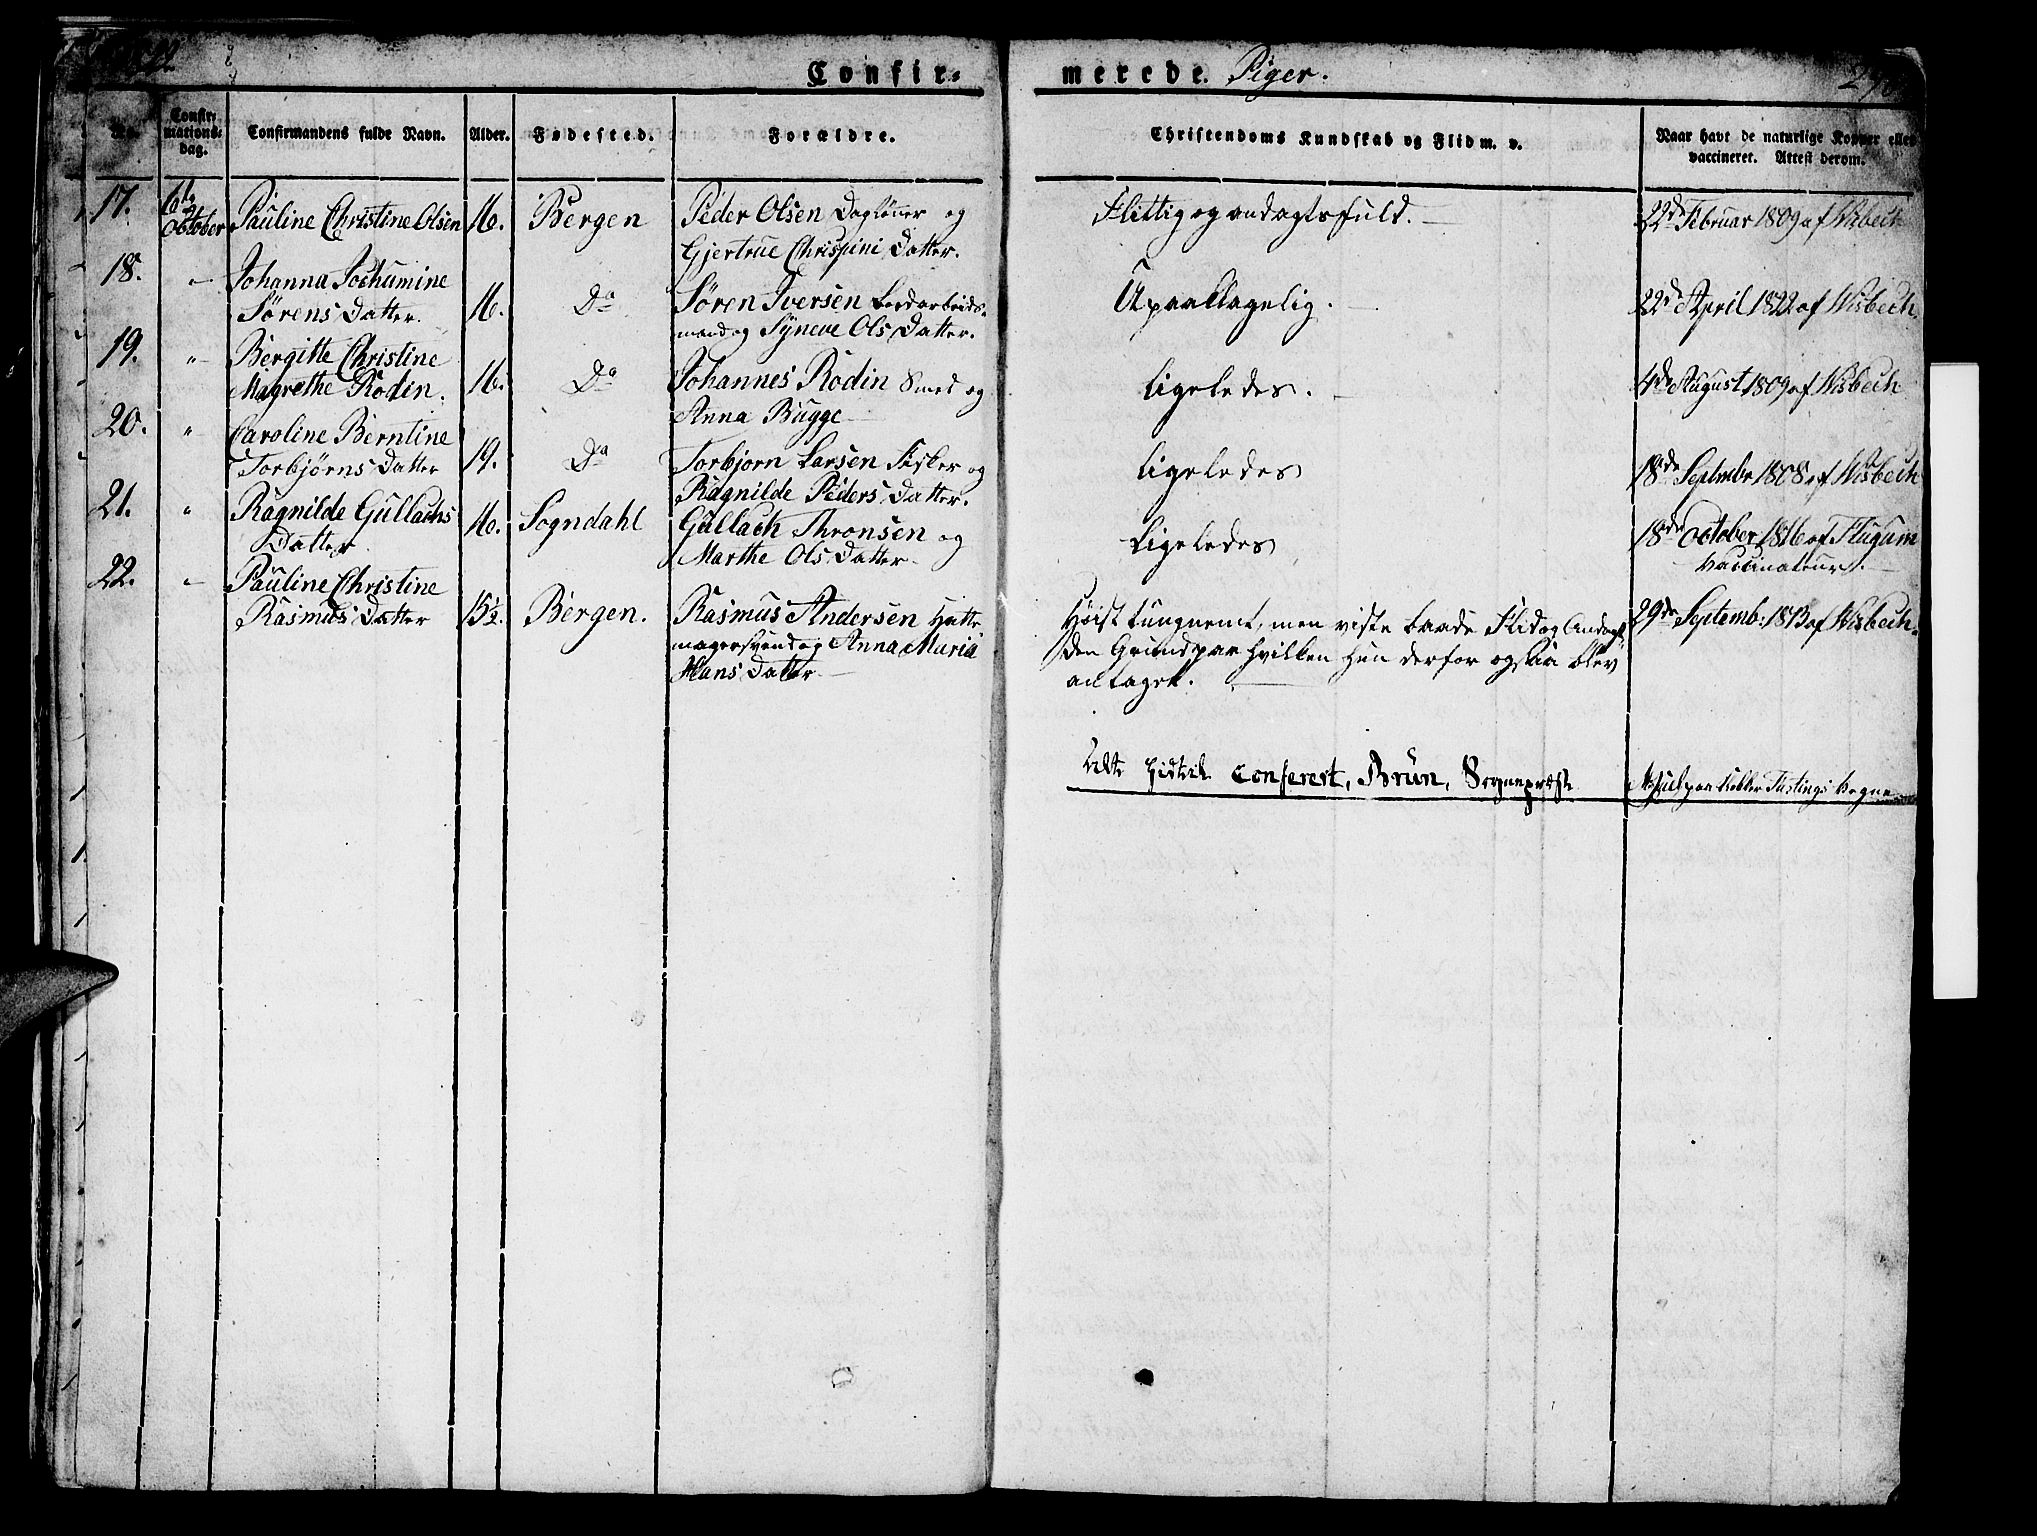 Confir- merede. Piger.
No. Confir- mations- dag. Confirmandens fulde Navn. Alder. Fødested. Forældre. Christendoms Kundskab og Flid m. v. Naar havt de naturlige Kopper eller vaccineret. Attest derom.
17. 6te October Pauline Christine Olsen 16. Bergen Peder Olsen Dagløner og Flittig og andagtsfuld. 22de Februar 1809 af Wisbech
Gjertrue Chrispini Datter.
18. " Johanna Jochumine
Sørens Datter. 16. Do Søren Iversen Bordarbeids- Upaaklagelig. 22de April 1822 af Wisbech
mand og Syneve Ols Datter.
19. " Bergitte Christine
Magrethe Rodin. 16. Do Johannes Rodin Smed og Ligeledes. 4de August 1809 af Wisbech
Anna Bugge
20. " Caroline Berntine
Torbjørns Datter 19. Do Torbjorn Larsen Fisker og Ligeledes 18de Septembr 1808 af Wisbech
Ragnilde Peders Datter.
21. " Ragnilde Gullachs 16. Sogndahl Gullach Thronsen og Ligeledes 18de October 1816 af Flugum
Datter Marthe Ols Datter. Vaccinateur.
22. " Pauline Christine
Rasmus Datter 15½. Bergen. Rasmus Andersen Hatte Høist tungnemt, men viste baade Flid og Andagt 29de Septemb: 1813 af Wisbech.
magersvend og Anna Maria den Grund par hvilken hun derfor ogsaa blev
Hans Datter antaget.
hidtil Confereret, Brün, Sognepræst